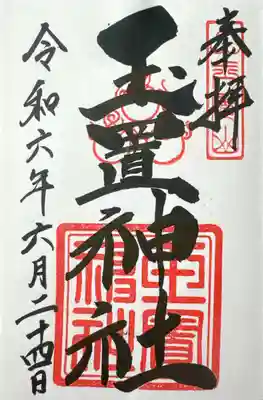 奉拝
玉置神社
令和六年六月二十四日